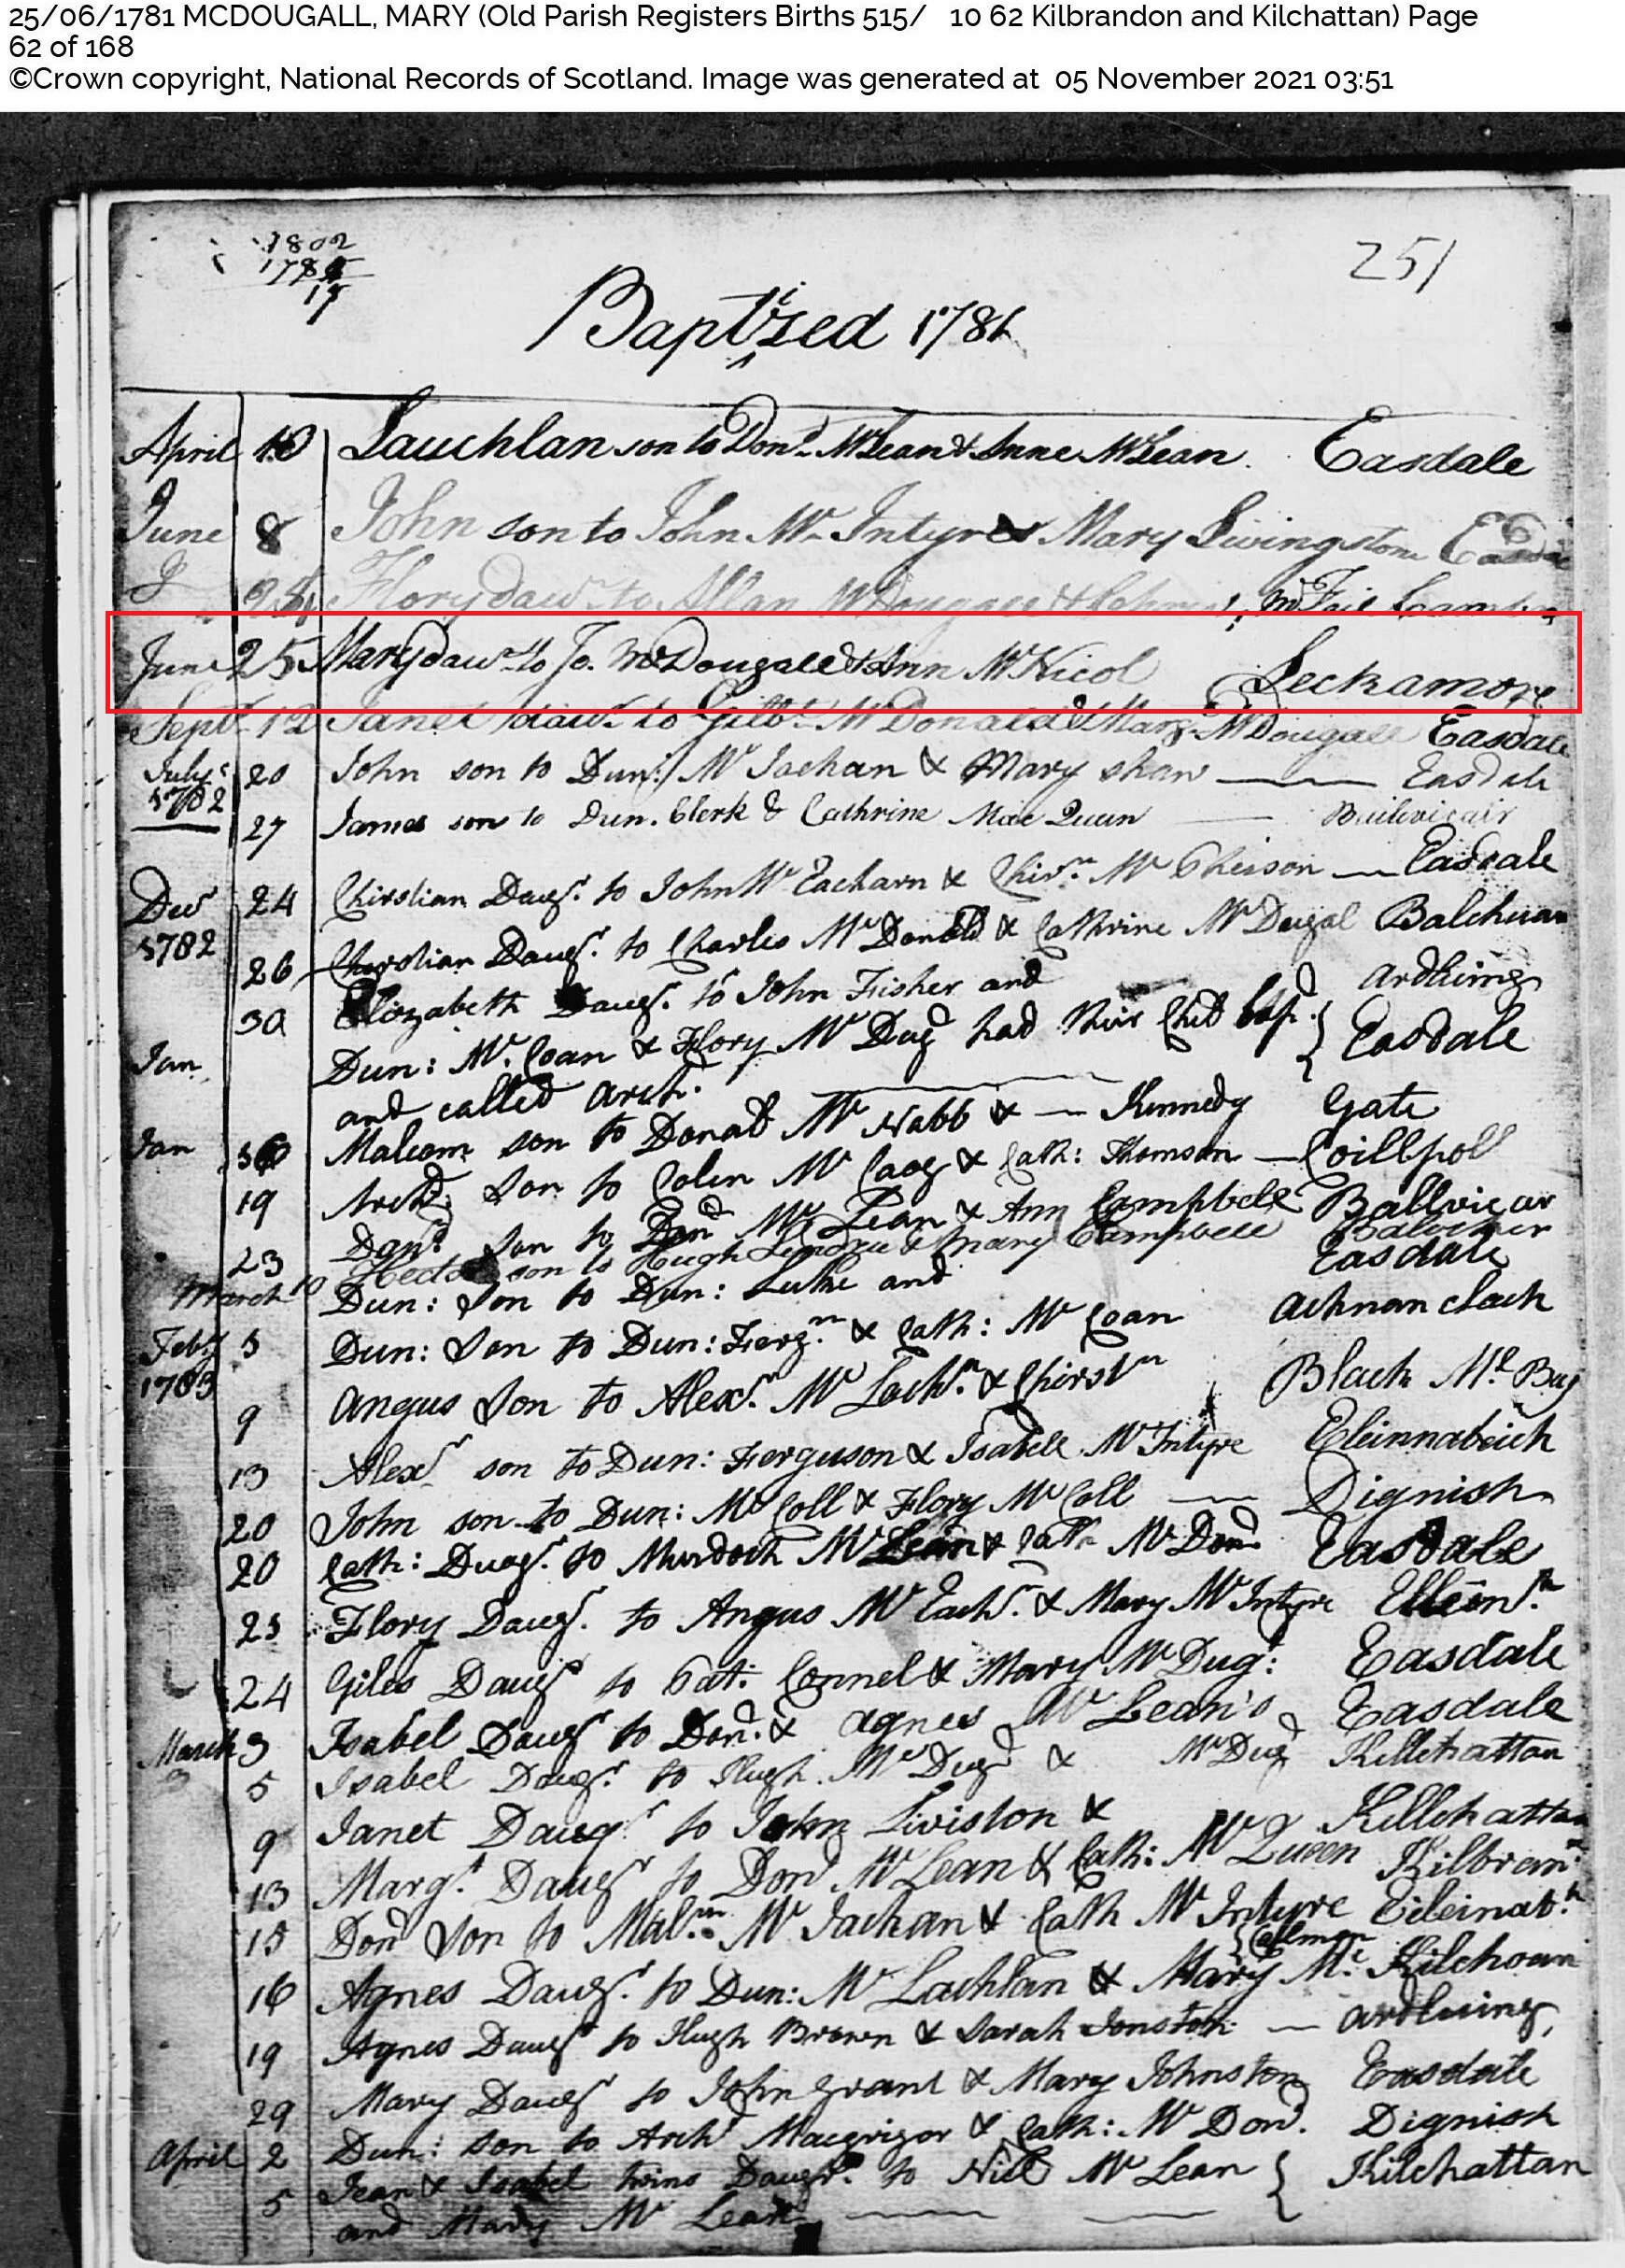 25/06/1781 MCDOUGALL, MARY (Old Parish Registers Births 515/ 10 62 Kilbrandon and Kilchattan) Page
62 of 168
©Crown copyright, National Records of Scotland. Image was generated at 05 November 2021 03:51
1802
178
17
251
Baptized 1781
April 10 Lauchlan son to Dond. McLean & Anne McLean. Easdale
June 8 John son to John Mc Intyre & Mary Livingstone Easdale
Flory dawr to Allan McDougall &
June 25 Mary dawr to Jo. McDougall & Ann McNicol Leckamore
Sept 12 Janet dawr to Gilbt McDonald & Marg. McDougall Easdale
July 1782 20 John son to Dun: Mc Iachan & Mary Shaw — Easdale
27 James son to Dun. Clerk & Cathrine Mac Quun —
Decr 1782 24 Chirstian Daugr. to John Mc Eacharn & Chirn. Mc Pherson — Easdale
26 Chirstian Daugr. to Charles Mc Donald & Cathrine Mc Dugal Balchuan
30 Elizabeth Daugr. to John Fisher and Ardluing
Jan Dun: Mc Coan & Flory Mc Dug had their Child bap. } Easdale
and called Arch.
Jan Malcom son to Donald Mc Nabb & — Kennedy Gate
19 Archd. Son to Colin Mc Caog & Cath: Thomson — Coillpoll
23 Dand. Son to Dond Mc Lean & Ann Campbell Ballvicar
March 10 Hector son to Hugh & Mary Campbell
Dun: Son to Dun: Luke and Easdale
Feby 1783 5 Dun: Son to Dun: Fergn. & Cath: Mc Coan Achnanclach
9 Angus Son to Alexr. Mc Lachn. & Chirstn Black Ml. Bay
13 Alexr son to Dun: Ferguson & Isabell Mc Intyre Eleinnabeich
20 John son to Dun: Mc Coll & Flory Mc Coll — Dignish
20 Cath: Daugr. to Murdoch Mc Lean & Cath Mc Dond Easdale
23 Flory Daugr. to Angus Mc Eachr. & Mary Mc Intyre
24 Giles Daugr to Pat: Connel & Mary Mc Dug: Easdale
March 3 Isabel Daugr to Dond. & Agnes Mc Lean's Easdale
5 Isabel Daugr. to Hugh Mc Dugd & Mc Dugd Killchattan
9 Janet Daugr. to John Liviston & Killchattan
13 Margt. Daugr to Dond Mc Lean & Cath: Mc Queen Kilbran
15 Dond Son to Malm. Mc Iachan & Cath Mc Intyre Eileinab.h
{Calman
16 Agnes Daugr. to Dun: Mc Lachlan & Mary Mc Kilchoan
19 Agnes Daugr to Hugh Brown & Sarah Jonston — Ardluing,
29 Mary Daugr to John Grant & Mary Johnston Easdale
April 2 Dun: son to Archd Macgrigor & Cath: Mc Dond. Dignish
5 Jean & Isabel twins Daugrs. to Nill Mc Lean { Kilchattan
and Mary Mc Lean — —